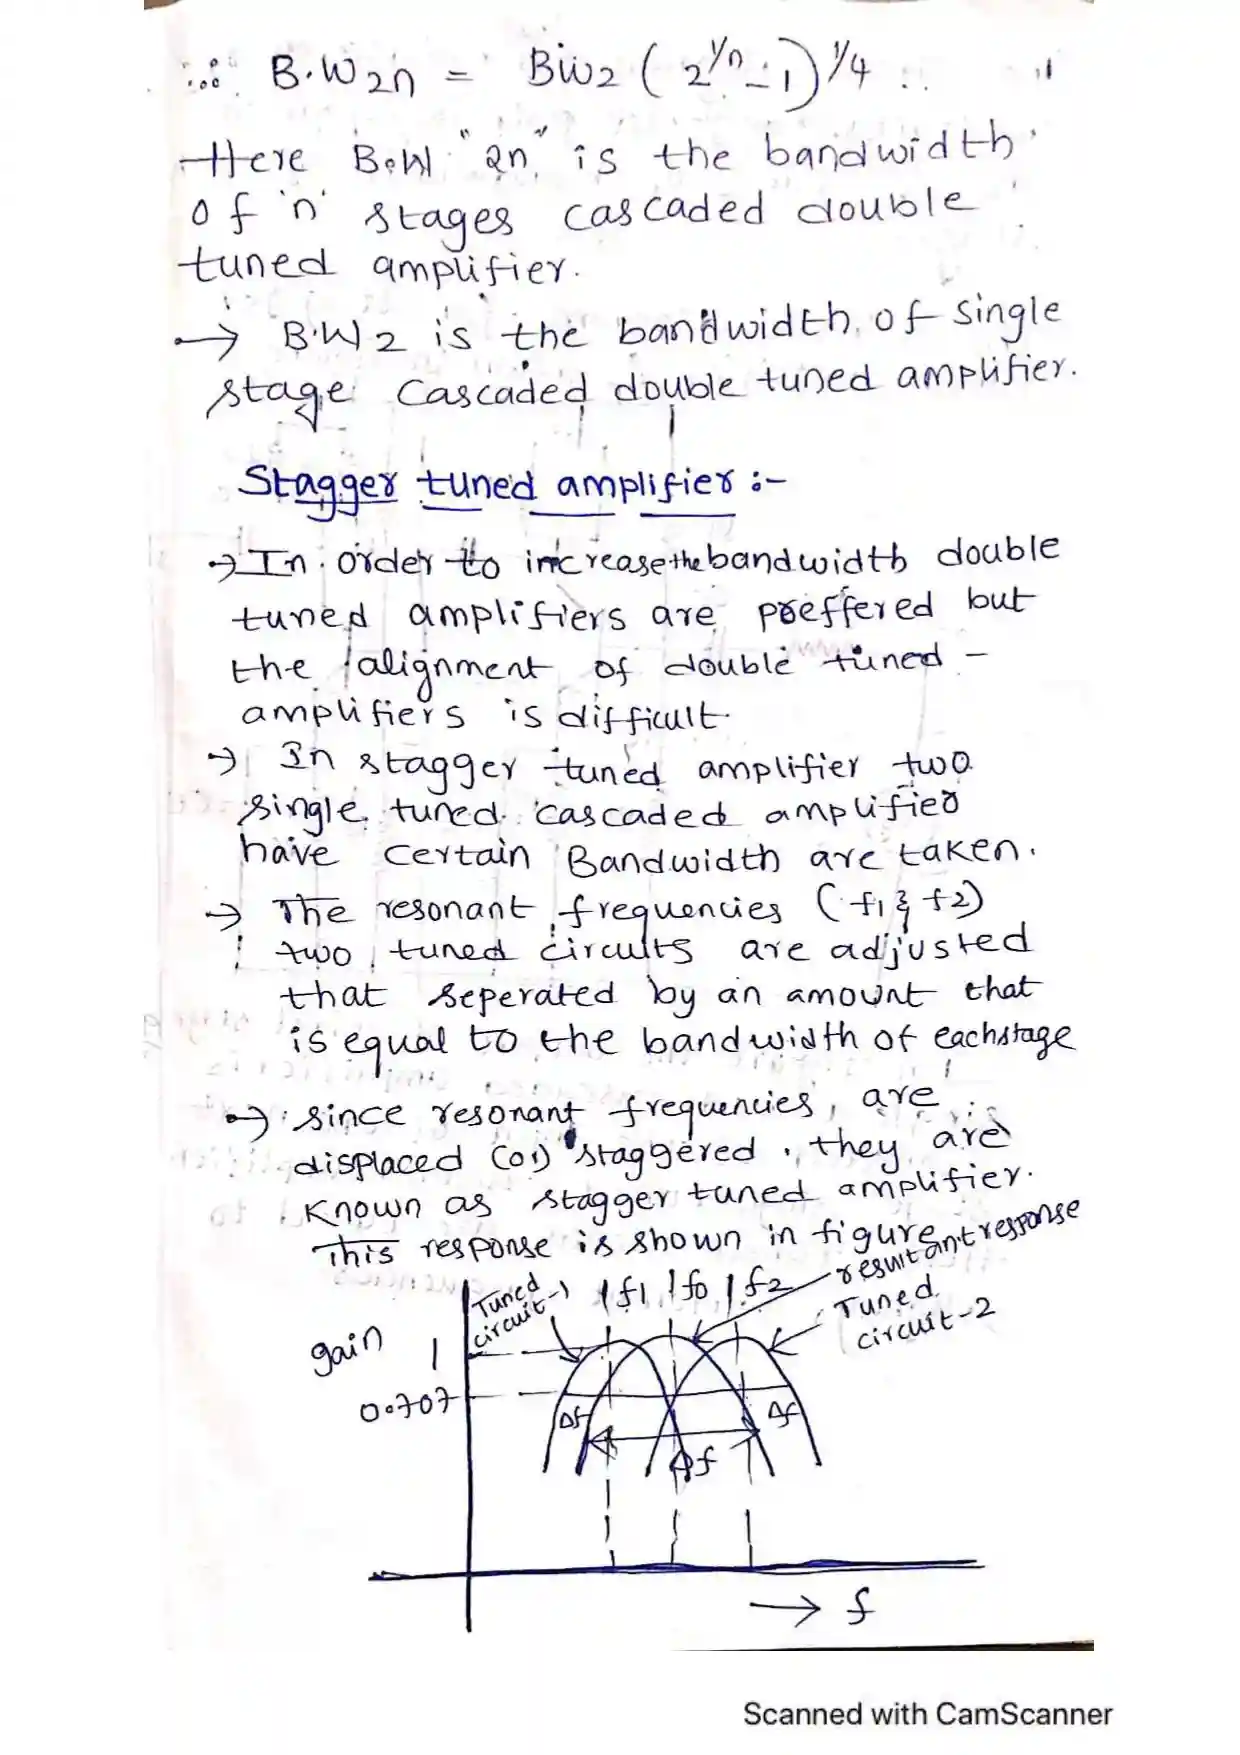 ∴ B.W2n = BW2 ( 2^1/n - 1 )^1/4
Here B.W "2n" is the bandwidth
of 'n' stages cascaded double
tuned amplifier.
→ B.W2 is the bandwidth of single
stage cascaded double tuned amplifier.
Stagger tuned amplifier :-
→ In order to increase the bandwidth double
tuned amplifiers are preffered but
the alignment of double tuned -
amplifiers is difficult.
→ In stagger tuned amplifier two
single tuned cascaded amplifier
have certain Bandwidth are taken.
→ The resonant frequencies ( f1 & f2)
two tuned circuits are adjusted
that seperated by an amount that
is equal to the bandwidth of each stage
→ since resonant frequencies, are
displaced (or) staggered, they are
known as stagger tuned amplifier.
This response is shown in figure.
resultant response
Tuned
circuit-1
f1 f0 f2
Tuned
circuit-2
gain
1
0.707
Δf
Δf
Δf
→ f
Scanned with CamScanner